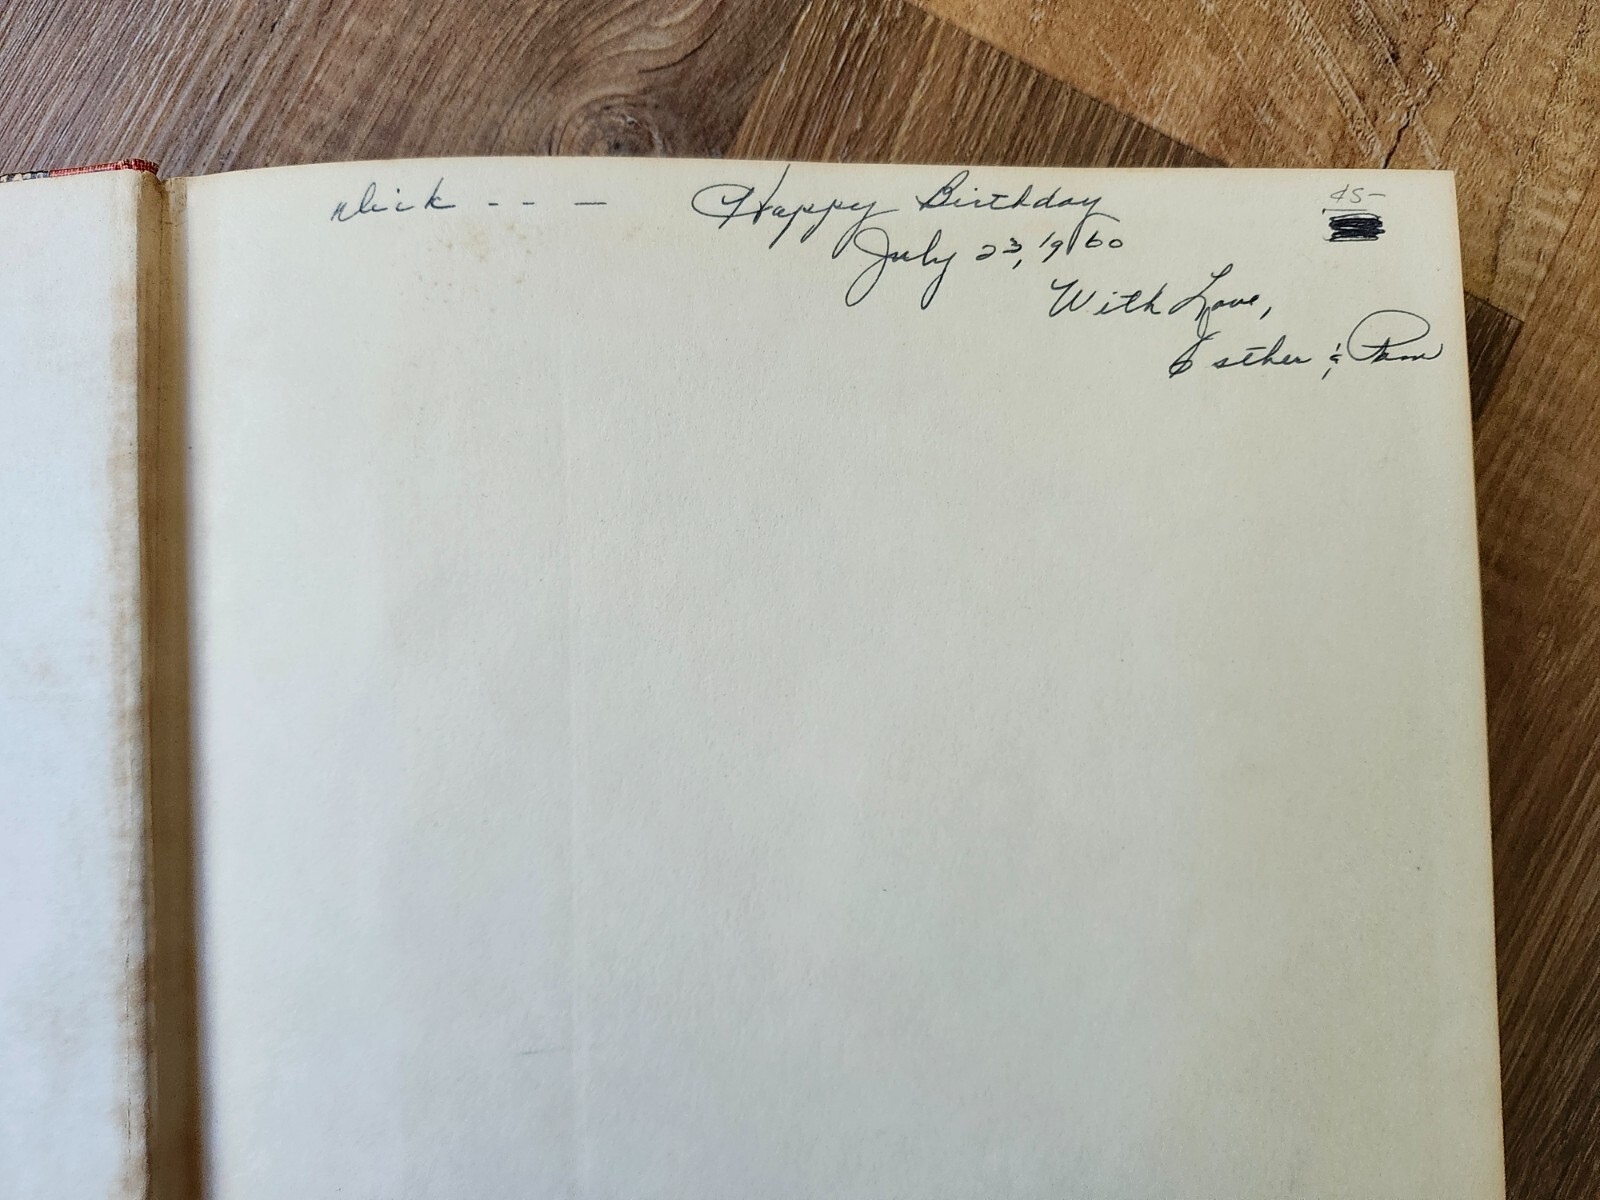 Dick - - - Happy Birthday 45-
July 23, 1960
With Love,
Esther & Pam